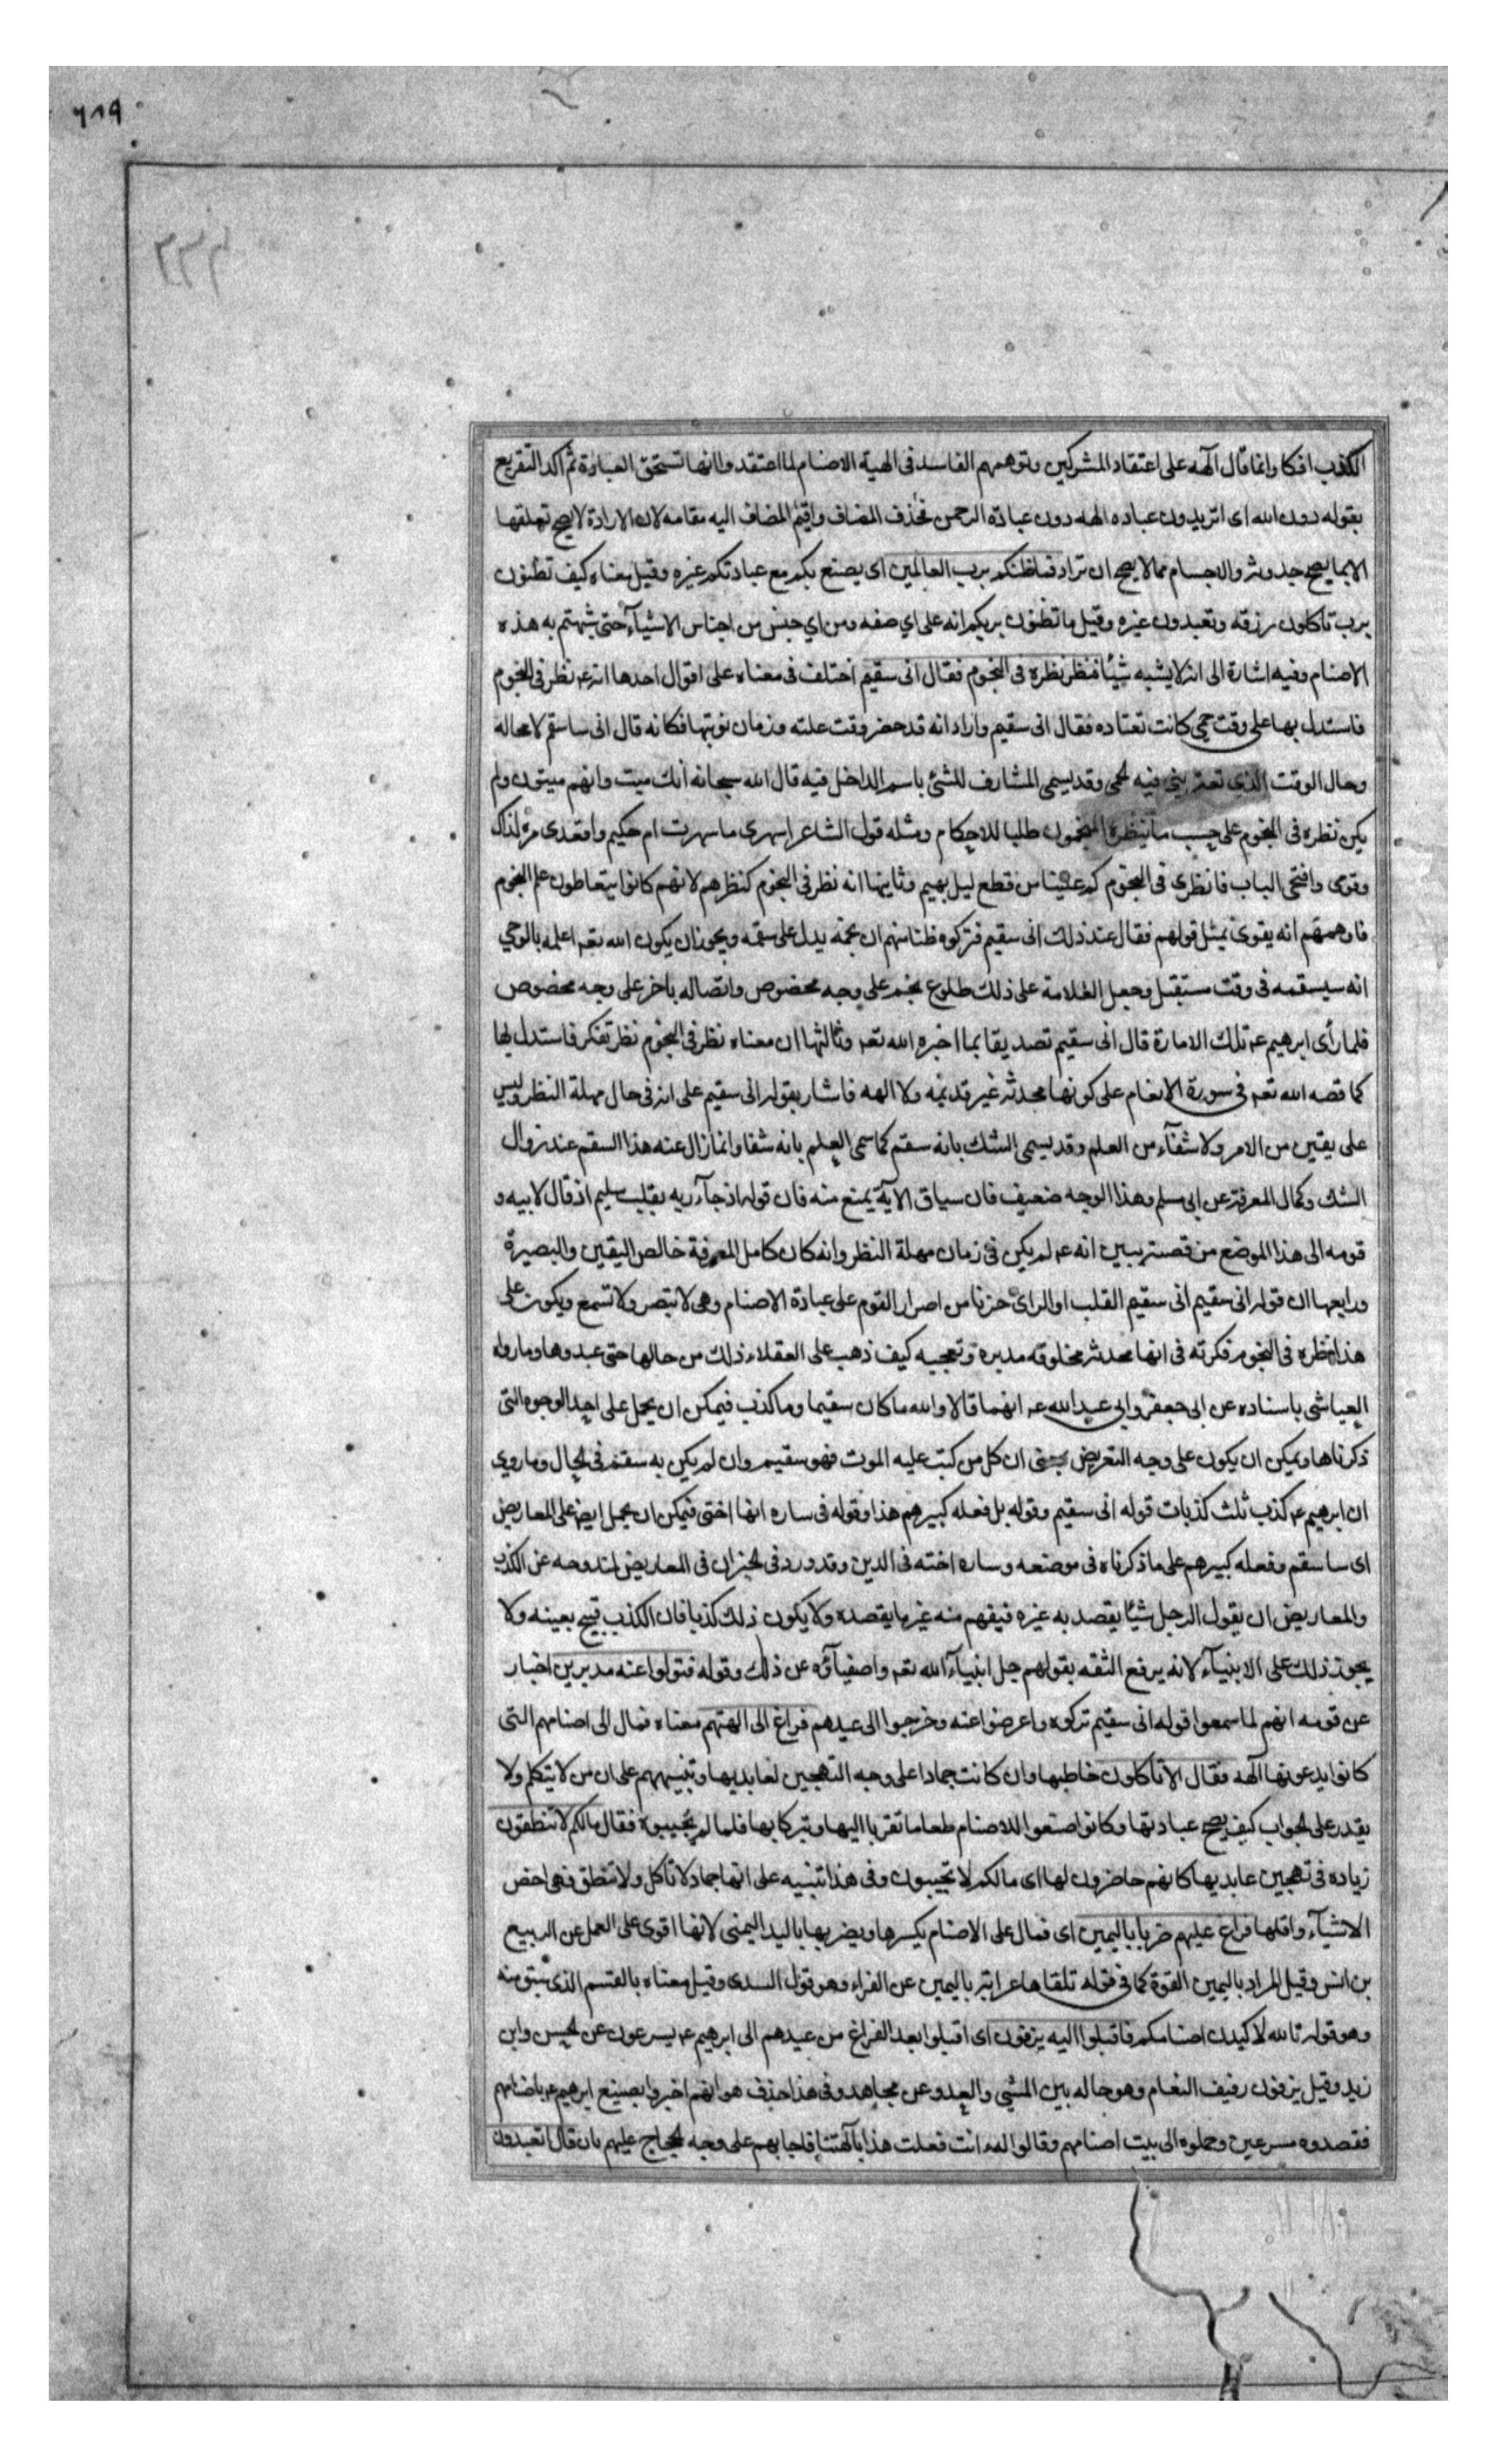 ٦٨٩
الكذب افكا وانما قال آلهة على اعتقاد المشركين وتوهمهم الفاسد فى الهية الاصنام لما اعتقدوا انها تستحق العبادة ثم اكد التقريع
بقوله دون الله اى اتريدون عباده الهه دون عبادة الرحمن فحذف المضاف واقيم المضاف اليه مقامه لان الارادة لا يصح تعلقها
الا بما يصح حدوثه والاجسام مما لا يصح ان تراد فما ظنكم برب العالمين اى يصنع بكم مع عبادتكم غيره وقيل معناه كيف تظنون
برب تاكلون رزقه وتعبدون غيره وقيل ما تظنون بربكم انه على اي صفه ومن اي جنس من اجناس الاشيآء حتى شبهتم به هذه
الاصنام وفيه اشارة الى انه لا يشبه شيئا فنظر نظرة فى النجوم فقال انى سقيم اختلف فى معناه على اقوال احدها انه عم نظر فى النجوم
فاستدل بها على وقت حمى كانت تعتاده فقال انى سقيم واراد انه قد حضر وقت علته وزمان نوبتها فكانه قال انى ساسقم لا محاله
وحال الوقت الذي تعتريني فيه الحمى وقد يسمى المشارف للشئ باسم الداخل فيه قال الله سبحانه انك ميت وانهم ميتون ولم
يكن نظره فى النجوم على حسب ما ينظره المنجمون طلبا للاحكام ومثله قول الشاعر اسهرى ما سهرت ام حكيم واقعدى مرة لذاك
وقومى وافتحى الباب فانظرى فى النجوم كم علينا من قطع ليل بهيم وثانيها انه نظر فى النجوم كنظرهم لانهم كانوا يتعاطون علم النجوم
فاوهمهم انه يقول بمثل قولهم فقال عند ذلك انى سقيم فتركوه ظنا منهم ان نجمه يدل على سقمه ويجوز ان يكون الله تعم اعلمه بالوحي
انه سيسقمه فى وقت مستقبل وجعل العلامة على ذلك طلوع نجم على وجه مخصوص واتصاله باخر على وجه مخصوص
فلما رأى ابرهيم عم تلك الامارة قال انى سقيم تصديقا بما اخبره الله تعم وثالثها ان معناه نظر فى النجوم نظر تفكر فاستدل بها
كما قصه الله تعم فى سورة الانعام على كونها محدثه غير قديمه ولا الهه فاشار بقوله انى سقيم على انه فى حال مهلة النظر وليس
على يقين من الامر ولا شفآء من العلم وقد يسمى الشك بانه سقم كما سمى العلم بانه شفا وانما زال عنه هذا السقم عند زوال
الشك وكمال المعرفة عن ابى مسلم وهذا الوجه ضعيف فان سياق الآية يمنع منه فان قوله اذ جآء ربه بقلب سليم اذ قال لابيه و
قومه الى هذا الموضع من قصته يبين انه عم لم يكن فى زمان مهلة النظر وانه كان كامل المعرفة خالص اليقين والبصيرة
ورابعها ان قوله انى سقيم انى سقيم القلب او الراى حزنا من اصرار القوم على عبادة الاصنام وهى لا تبصر ولا تسمع ويكون على
هذا نظره فى النجوم فكرته فى انها محدثه مخلوقه مدبرة وتعجبه كيف ذهب على العقلاء ذلك من حالها حتى عبدوها وما رواه
العياشى باسناده عن ابى جعفر وابى عبد الله عم انهما قالا والله ما كان سقيما وما كذب فيمكن ان يحمل على احد الوجوه التى
ذكرناها ويمكن ان يكون على وجه التعريض بمعنى ان كل من كتب عليه الموت فهو سقيم وان لم يكن به سقم فى الحال وما روي
ان ابرهيم عم كذب ثلث كذبات قوله انى سقيم وقوله بل فعله كبيرهم هذا وقوله فى ساره انها اختى فيمكن ان يحمل ايضا على المعاريض
اى ساسقم وفعله كبيرهم على ما ذكرناه فى موضعه وساره اخته فى الدين وقد ورد فى الخبر ان فى المعاريض لمندوحه عن الكذب
والمعاريض ان يقول الرجل شيئا يقصد به غيره فيفهم منه غير ما يقصده ولا يكون ذلك كذبا فان الكذب قبيح بعينه ولا
يجوز ذلك على الانبيآء لانه يرفع الثقه بقولهم جل انبيآء الله تعم واصفيآؤه عن ذلك وقوله فتولوا عنه مدبرين اخبار
عن قومه انهم لما سمعوا قوله انى سقيم تركوه واعرضوا عنه وخرجوا الى عيدهم فراغ الى الهتهم معناه فمال الى اصنامهم التى
كانوا يدعونها آلهه فقال الا تاكلون خاطبها وان كانت جمادا على وجه التهجين لعابديها وتنبيههم على ان من لا يتكلم ولا
يقدر على الجواب كيف يصح عبادتها وكانوا صنعوا للاصنام طعاما تقربا اليها وتبركا بها فلما لم يجيبوه فقال مالكم لا تنطقون
زياده فى تهجين عابديها كانهم حاضرون لها اى مالكم لا تجيبون وفى هذا تنبيه على انها جماد لا تاكل ولا تنطق فهى اخس
الاشيآء واقلها فراغ عليهم ضربا باليمين اى فمال على الاصنام يكسرها ويضربها باليد اليمنى لانها اقوى على العمل عن الربيع
بن انس وقيل المراد باليمين القوة كما فى قوله تلقاها عرابة باليمين عن الفراء وهو قول السدى وقيل معناه بالقسم الذى سبق منه
وهو قوله تالله لاكيدن اصنامكم فاقبلوا اليه يزفون اى اقبلوا بعد الفراغ من عيدهم الى ابرهيم عم يسرعون عن الحسن وابن
زيد وقيل يزفون زفيف النعام وهو حاله بين المشي والعدو عن مجاهد وفى هذا حذف هو انهم اخبروا بصنيع ابرهيم عم باصنامهم
فقصدوه مسرعين وحملوه الى بيت اصنامهم وقالوا له ءانت فعلت هذا بآلهتنا فاجابهم على وجه الحجاج عليهم بان قال اتعبدون